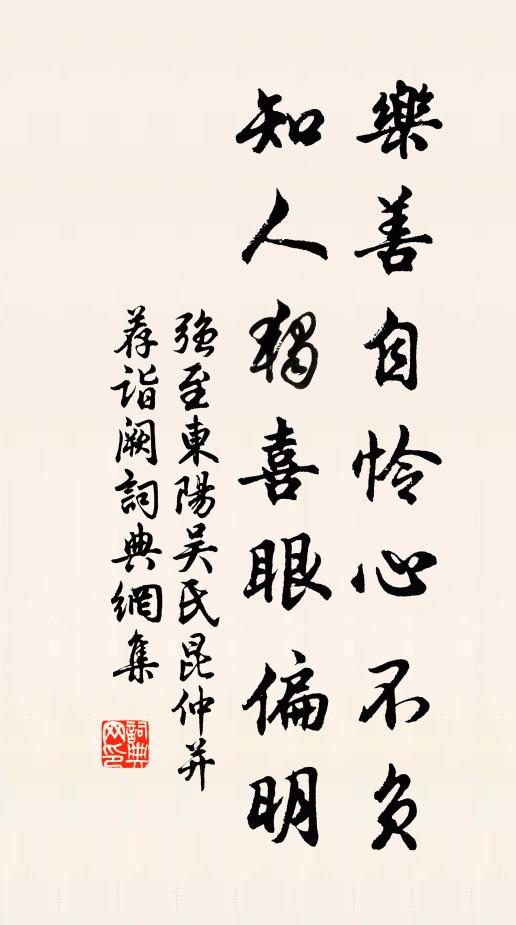 樂善自怜心不负
知人獨喜眼偏明
強至東陽吴氏昆仲并
荐詣闕詞典網集
詞典
网印